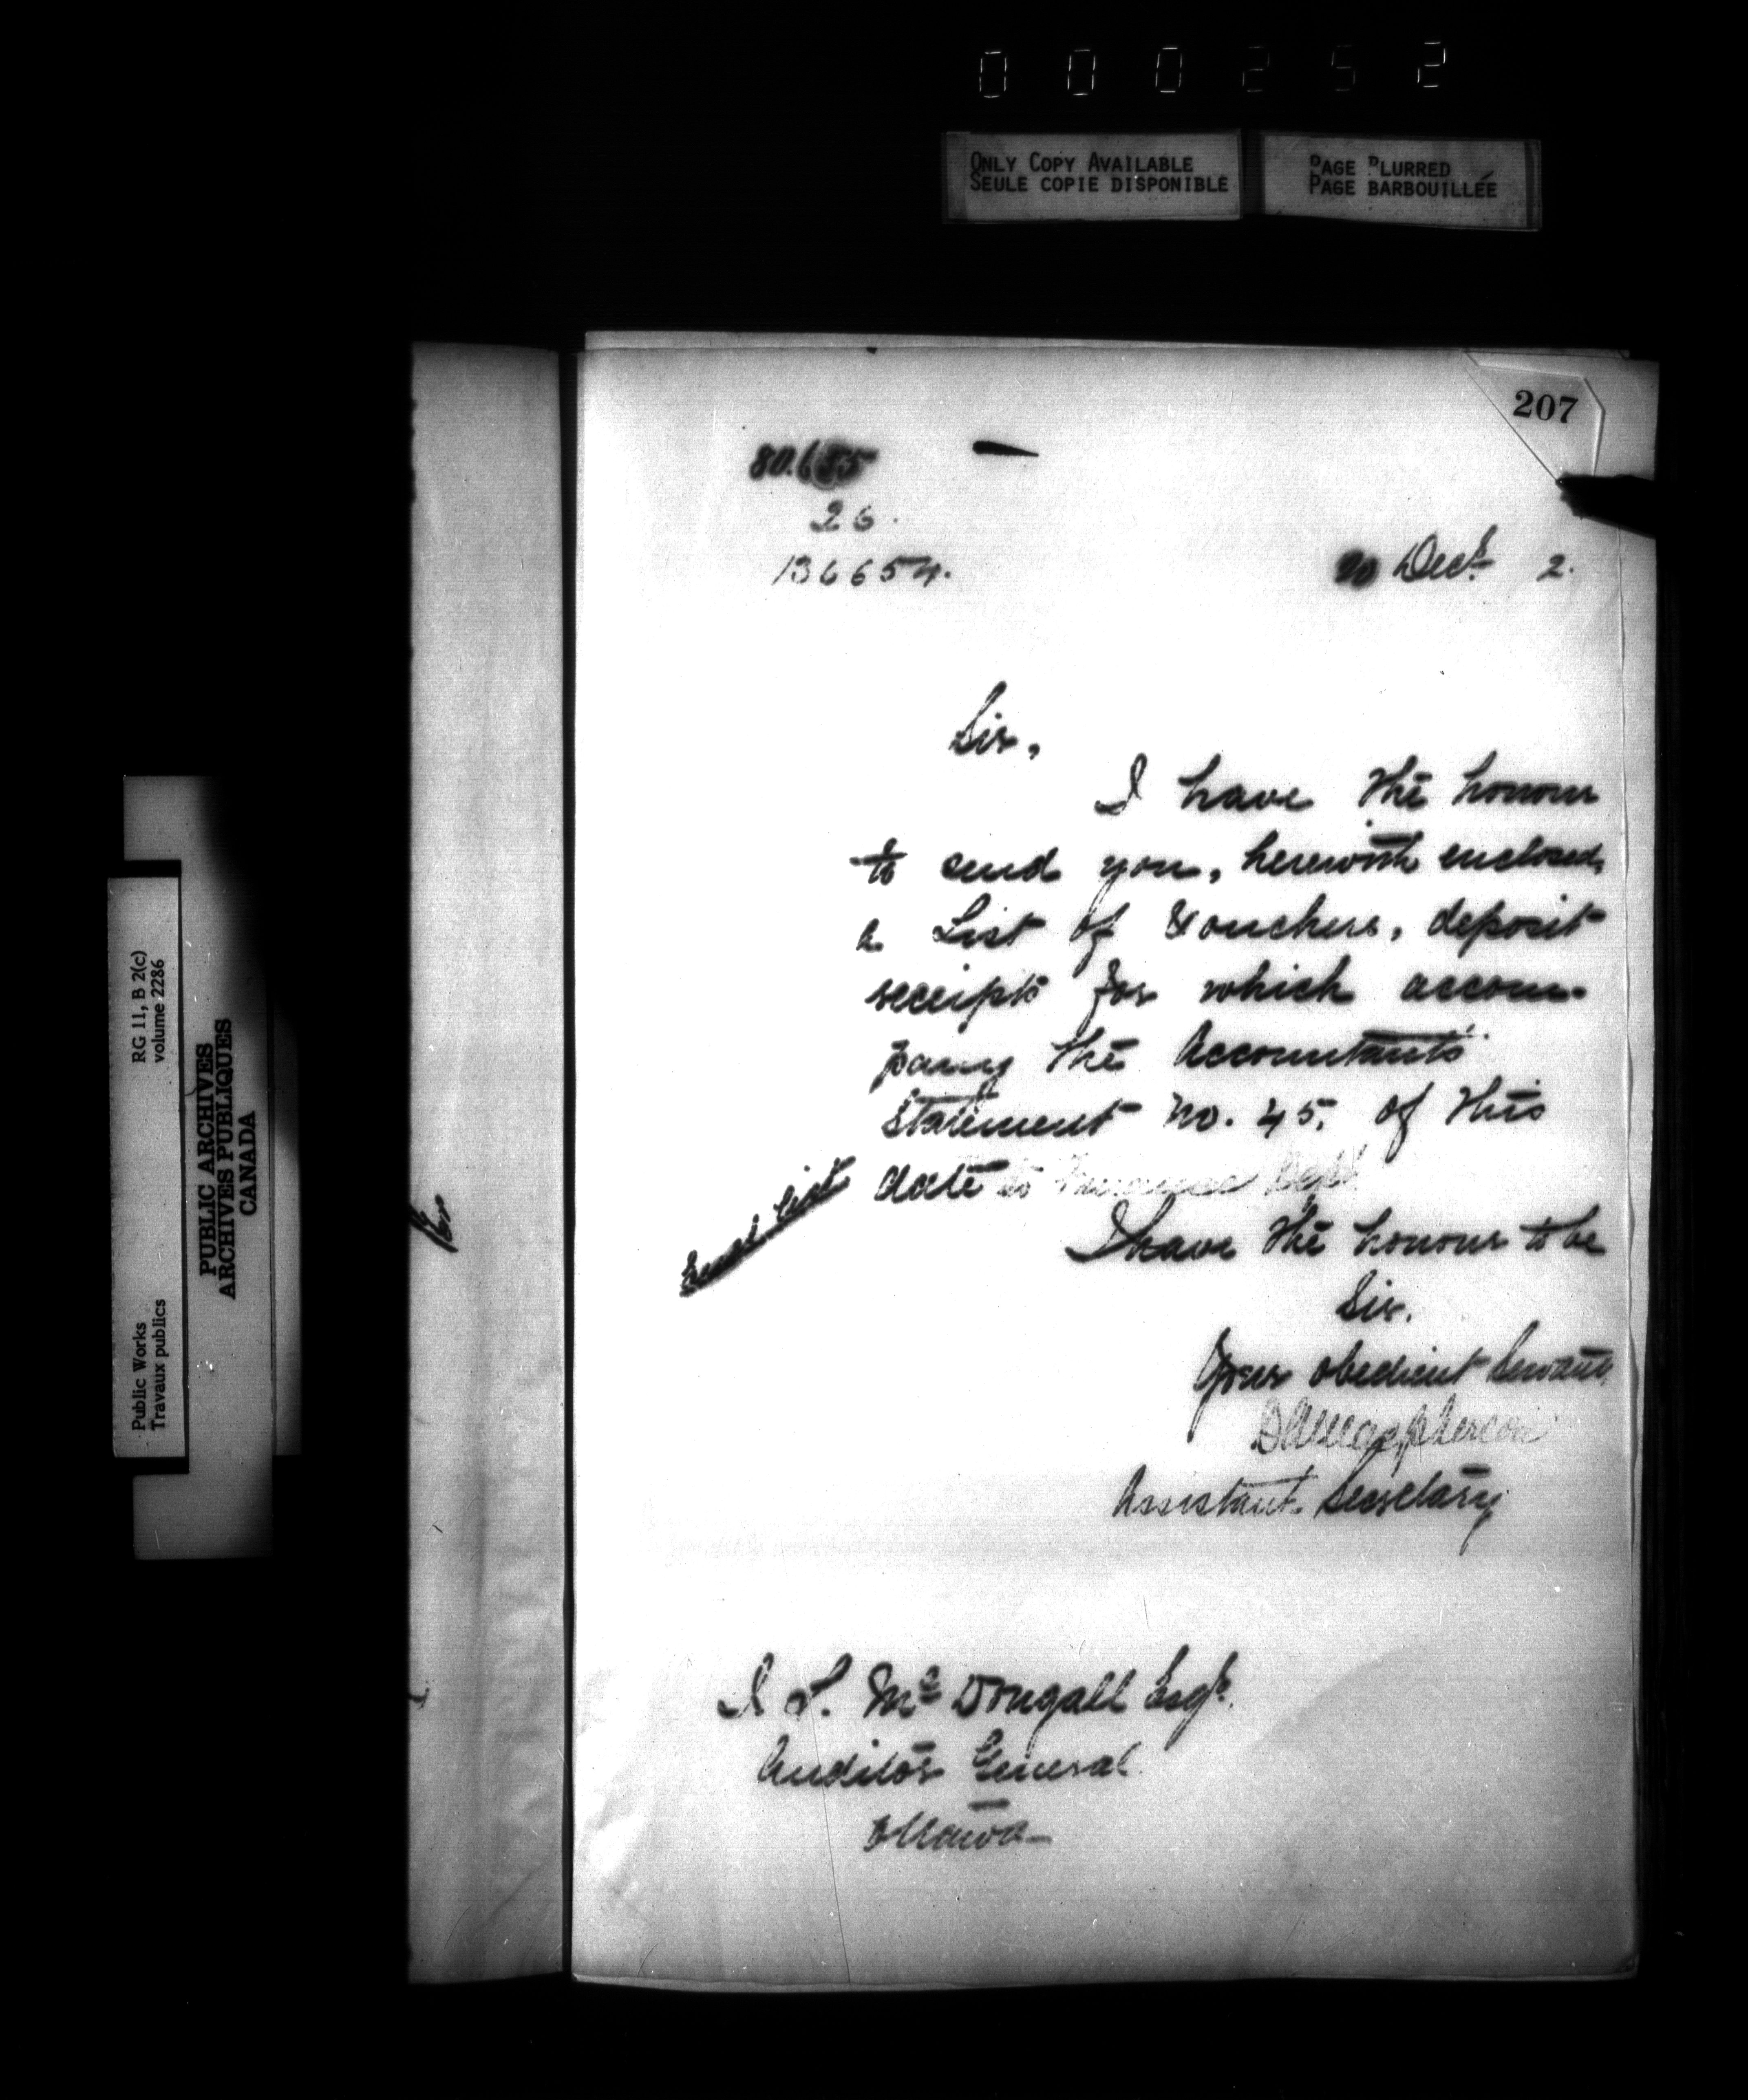 000252
ONLY COPY AVAILABLE
SEULE COPIE DISPONIBLE
PAGE BLURRED
PAGE BARBOUILLÉE
207
80.685
26.
136654.
20 Decr 2.
Sir,
I have the honour
to send you, herewith enclosed,
a List of Vouchers, deposit
receipts for which accom-
pany the Accountants
Statement No. 45. of this
date to Finance Dept
list
I have the honour to be
Sir.
Your obedient Servant,
D A Macpherson
Assistant Secretary
J L. Mc Dougall Esqr.
Auditor General
Ottawa
RG 11, B 2(c)
volume 2286
Public Works
Travaux publics
PUBLIC ARCHIVES
ARCHIVES PUBLIQUES
CANADA